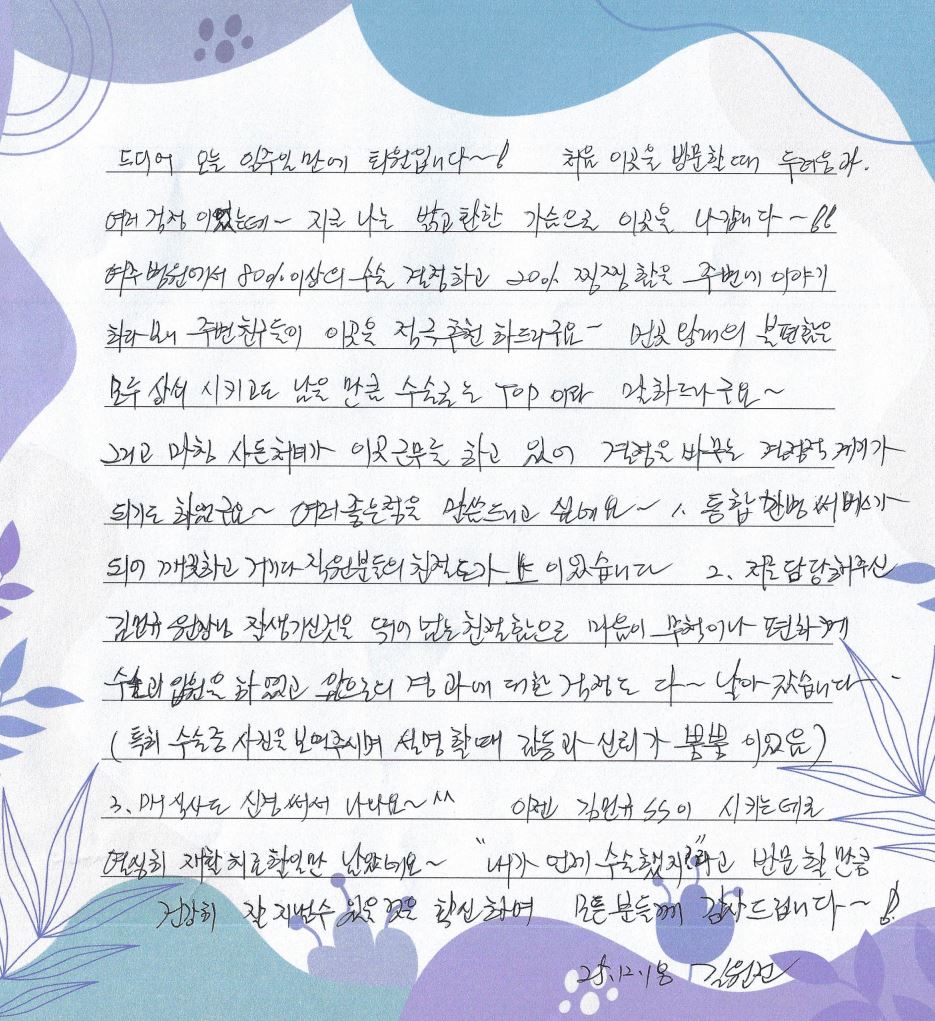 드디어 오늘 일주일만에 퇴원입니다~! 처음 이곳을 방문할때 두려움과.
여러걱정 이었는데~ 지금 나는 밝고 환한 가슴으로 이곳을 나갑니다~!!
여주병원에서 80%이상의 수술 결정하고 20% 찜찜함을 주변에 이야기
하다보니 주변친구들이 이곳을 적극추천 하드라구요~ 먼곳 의 불편함은
모두 상쇄 시키고도 남을 만큼 수술로는 TOP 이라 말하드라구요~
그리고 마침 사돈처녀가 이곳근무를 하고 있어 결정을 바꾸는 결정적 계기가
되기도 하였구요~ 여러좋은점을 말씀드리고 싶네요~ 1. 통합 간병 써비스가
되어 깨끗하고 거기다 직원분들의 친절도가 이었습니다 2. 저를 담당해주신
김민규 원장님 잘생기신것을 뛰어 넘는 친절함으로 마음이 무척이나 편하게
수술과 입원을 하였고 앞으로의 경과에 대한 걱정도 다~ 날아 갔습니다
(특히 수술중 사진을 보여주시며 설명할때 감동과 신뢰가 뿜뿜 이었음)
3. 매 식사도 신경써서 나와요~^^ 이젠 김민규SS이 시키는데로
열심히 재활치료할일만 남았네요~ "내가 언제 수술했지?"라고 반문 할 만큼
건강히 잘 지낼수 있을 것을 확신하며 모든 분들께 감사드립니다~!
25.12.18 김원전